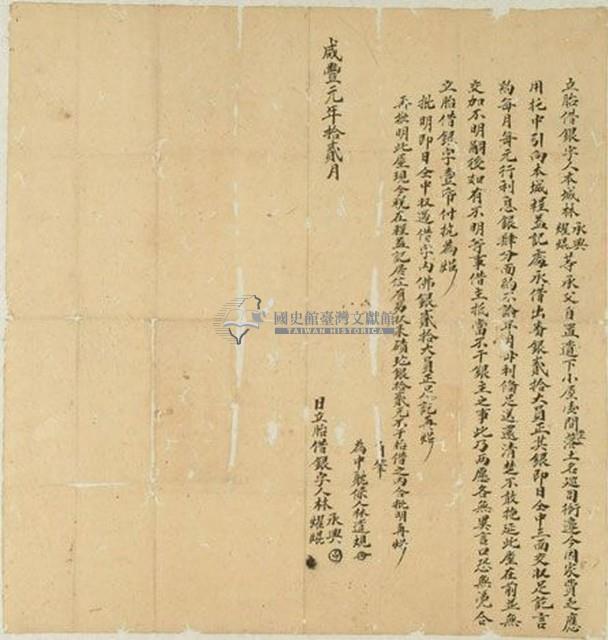 立胎借銀字人本城林承興耀崐等承父自置遺下小屋壹間落土名巡司衙邊今因家費乏應
用托中引向本城程益記處承借出番銀貳拾大員正其銀即日仝中三面交收足訖言
約每月每元行利息銀肆分面約不論年月母利備足送還清楚不敢拖延此屋在前並無
交加不明嗣後如有不明等事借主抵當不干銀主之事此乃兩愿各無異言口恐無凭合
立胎借銀字壹帋付执為炤
批明即日仝中收過借字內佛銀貳拾大員正足訖再炤
再批明此屋現今稅在程益記居住有 以來磧地銀拾貳元不干胎借之內合批明再炤
自筆
為中號保人林道規
日立胎借銀字人林承興耀崐
咸豐元年拾貳月
國史館臺灣文獻館
TAIWAN HISTORICA